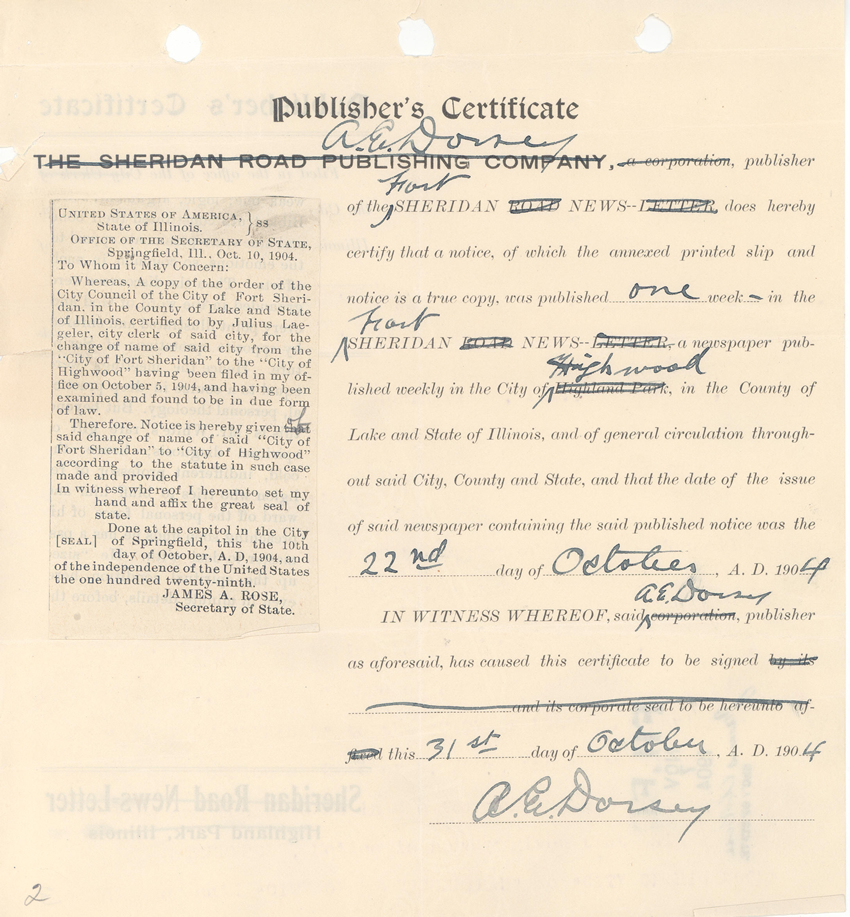 Publisher's Certificate
A. E. Dorsey
THE SHERIDAN ROAD PUBLISHING COMPANY, a corporation, publisher
Fort
of the SHERIDAN ROAD NEWS--LETTER, does hereby
certify that a notice, of which the annexed printed slip and
notice is a true copy, was published one week – in the
Fort
SHERIDAN ROAD NEWS--LETTER, a newspaper pub-
Highwood
lished weekly in the City of Highland Park, in the County of
Lake and State of Illinois, and of general circulation through-
out said City, County and State, and that the date of the issue
of said newspaper containing the said published notice was the
22nd day of October, A. D. 1904
A. E. Dorsey
IN WITNESS WHEREOF, said corporation, publisher
as aforesaid, has caused this certificate to be signed by its
and its corporate seal to be hereunto af-
fixed this 31st day of October, A. D. 1904
A. E. Dorsey
UNITED STATES OF AMERICA, } ss
State of Illinois.
OFFICE OF THE SECRETARY OF STATE,
Springfield, Ill., Oct. 10, 1904.
To Whom it May Concern:
Whereas, A copy of the order of the
City Council of the City of Fort Sheri-
dan, in the County of Lake and State
of Illinois, certified to by Julius Lae-
geler, city clerk of said city, for the
change of name of said city from the
"City of Fort Sheridan" to the "City of
Highwood" having been filed in my of-
fice on October 5, 1904, and having been
examined and found to be in due form
of law.
of
Therefore. Notice is hereby given that
said change of name of said "City of
Fort Sheridan" to "City of Highwood"
according to the statute in such case
made and provided
In witness whereof I hereunto set my
hand and affix the great seal of
state.
Done at the capitol in the City
[SEAL] of Springfield, this the 10th
day of October, A. D, 1904, and
of the independence of the United States
the one hundred twenty-ninth.
JAMES A. ROSE,
Secretary of State.
Sheridan Road News-Letter
Highland Park, Illinois
2